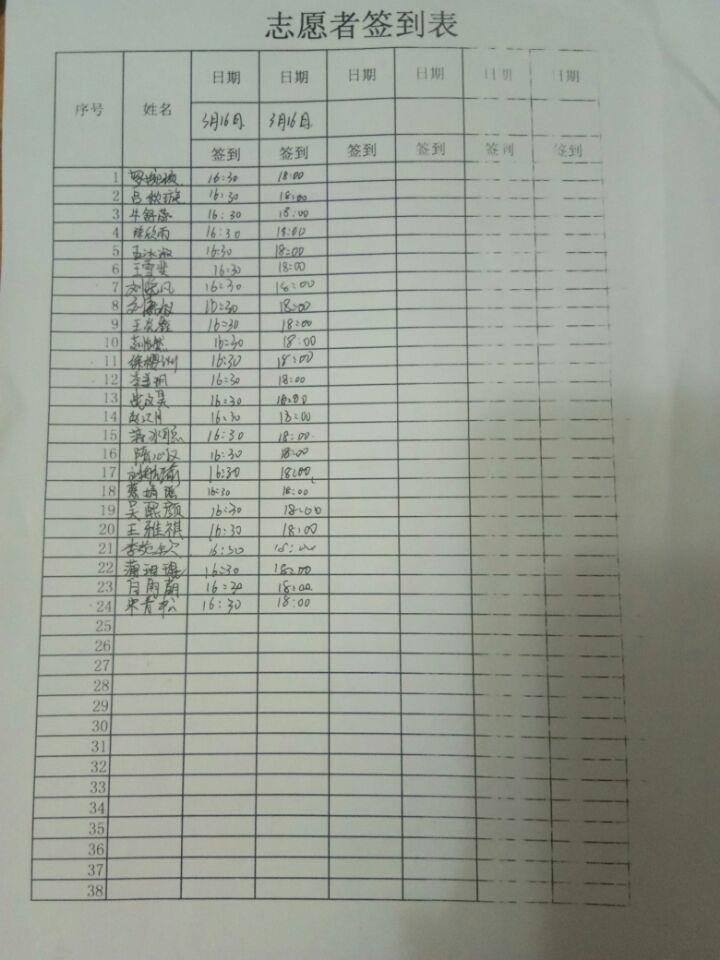 志愿者签到表
序号 姓名 日期 日期 日期 日期 日期 日期
3月16日 3月16日
签到 签到 签到 签到 签到 签到
1 16:30 18:00
2 16:30 18:00
3 16:30 18:00
4 欣雨 16:30 18:00
5 16:30 18:00
6 王雪斐 16:30 18:00
7 刘悦凡 16:30 18:00
8 16:30 18:00
9 王 16:30 18:00
10 16:30 18:00
11 徐樱洲 16:30 18:00
12 16:30 18:00
13 16:30 18:00
14 赵江月 16:30 18:00
15 16:30 18:00
16 隋心仪 16:30 18:00
17 16:30 18:00
18 16:30 18:00
19 吴熙颜 16:30 18:00
20 王雅祺 16:30 18:00
21 李 16:30 18:00
22 16:30 18:00
23 白雨朝 16:30 18:00
24 宋青松 16:30 18:00
25
26
27
28
29
30
31
32
33
34
35
36
37
38